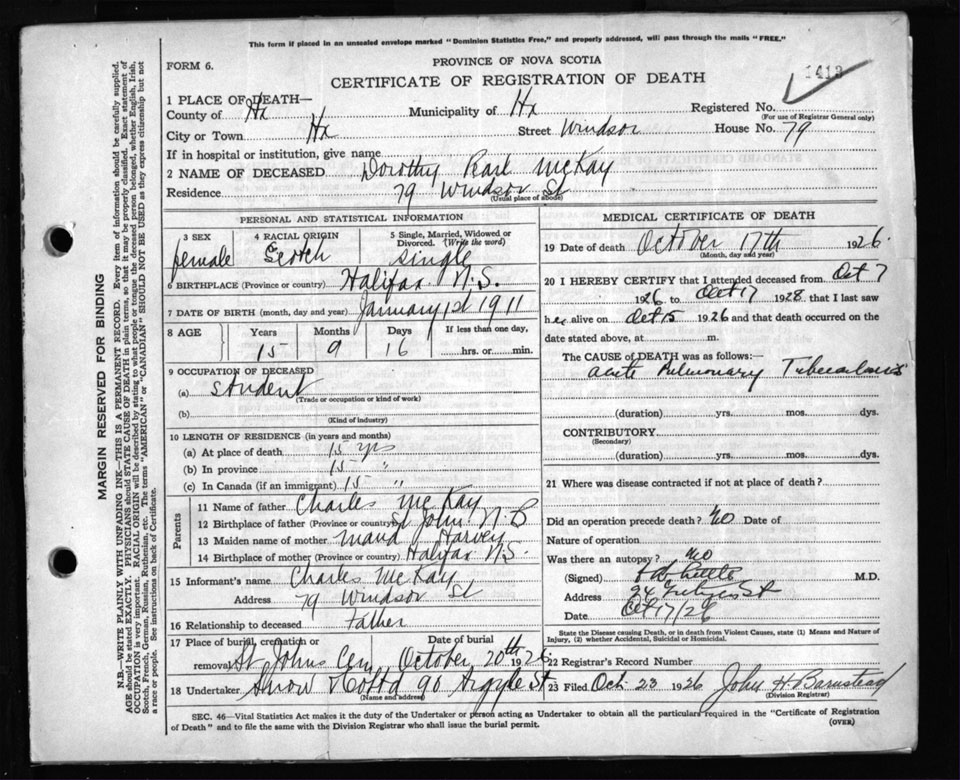 This form if placed in an unsealed envelope marked "Dominion Statistics Free," and properly addressed, will pass through the mails "FREE."
FORM 6.
PROVINCE OF NOVA SCOTIA
CERTIFICATE OF REGISTRATION OF DEATH
1413
1 PLACE OF DEATH—
County of Hx Municipality of Hx Registered No.
(For use of Registrar General only)
City or Town Hx Street Windsor House No. 79
If in hospital or institution, give name
2 NAME OF DECEASED Dorothy Pearl McKay
Residence 79 Windsor St
(Usual place of abode)
PERSONAL AND STATISTICAL INFORMATION
3 SEX 4 RACIAL ORIGIN 5 Single, Married, Widowed or Divorced. (Write the word)
female Scotch Single
6 BIRTHPLACE (Province or country) Halifax N.S.
7 DATE OF BIRTH (month, day and year) January 1st 1911
8 AGE Years Months Days If less than one day,
15 9 16 hrs. or min.
9 OCCUPATION OF DECEASED
(a) Student
(Trade or occupation or kind of work)
(b)
(Kind of industry)
10 LENGTH OF RESIDENCE (in years and months)
(a) At place of death 15 yrs
(b) In province 15 "
(c) In Canada (if an immigrant) 15 "
Parents
11 Name of father Charles McKay
12 Birthplace of father (Province or country) St John N.B
13 Maiden name of mother Maud Harvey
14 Birthplace of mother (Province or country) Halifax N.S.
15 Informant's name Charles McKay
Address 79 Windsor St
16 Relationship to deceased Father
17 Place of burial, cremation or Date of burial
removal St Johns Cem October 20th 1926
18 Undertaker Snow & Co Ltd 90 Argyle St
(Name and address)
MEDICAL CERTIFICATE OF DEATH
19 Date of death October 17th 1926.
(Month, day and year)
20 I HEREBY CERTIFY that I attended deceased from Oct 7
1926 to Oct 17 1928 that I last saw
her alive on Oct 15 1926 and that death occurred on the
date stated above, at m.
The CAUSE of DEATH was as follows:—
Acute Pulmonary Tuberculosis
(duration) yrs. mos. dys.
CONTRIBUTORY
(Secondary)
(duration) yrs. mos. dys.
21 Where was disease contracted if not at place of death?
Did an operation precede death? No Date of
Nature of operation
Was there an autopsy? No
(Signed) M.D.
Address St
Date Oct 17/26
State the Disease causing Death, or in death from Violent Causes, state (1) Means and Nature of Injury, (2) whether Accidental, Suicidal or Homicidal.
22 Registrar's Record Number
23 Filed Oct. 23 1926 John H Barnstead
(Division Registrar)
SEC. 46—Vital Statistics Act makes it the duty of the Undertaker or person acting as Undertaker to obtain all the particulars required in the "Certificate of Registration
of Death" and to file the same with the Division Registrar who shall issue the burial permit. (OVER)
MARGIN RESERVED FOR BINDING
N.B.—WRITE PLAINLY WITH UNFADING INK—THIS IS A PERMANENT RECORD. Every item of information should be carefully supplied.
AGE should be stated EXACTLY. PHYSICIANS should STATE CAUSE OF DEATH in plain terms, so that it may be properly classified. Exact statement of
OCCUPATION is very important. RACIAL ORIGIN will be described by stating to what people or tongue the deceased person belonged, whether English, Irish,
Scotch, French, German, Russian, Ruthenian, etc. The terms "AMERICAN" or "CANADIAN" SHOULD NOT BE USED as they express citizenship but not
a race or people. See instructions on back of Certificate.